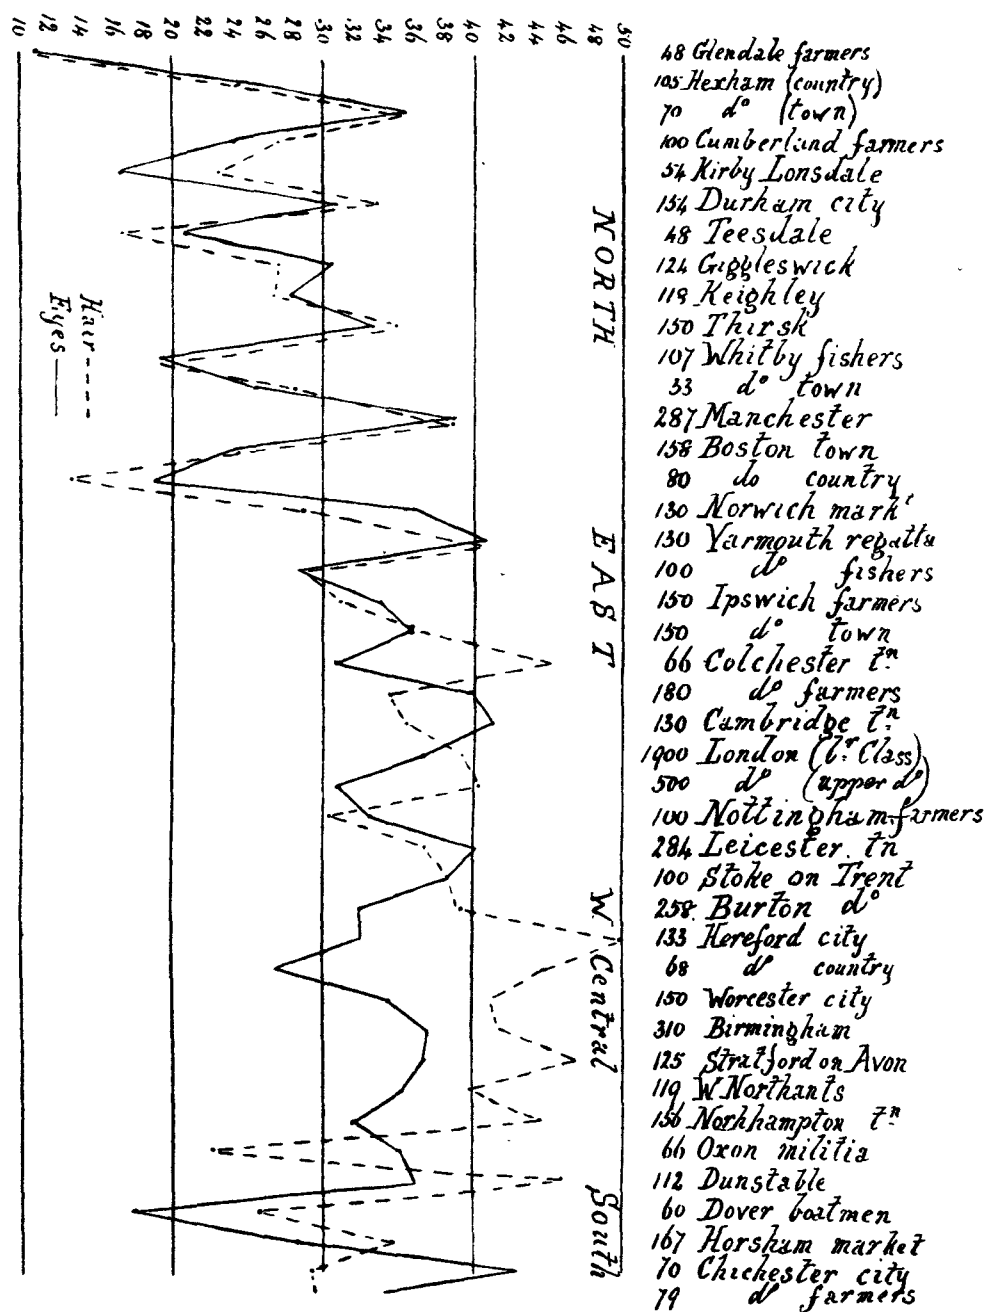 10 12 14 16 18 20 22 24 26 28 30 32 34 36 38 40 42 44 46 48 50
48 Glendale farmers
105 Hexham (country)
70 dº (town)
100 Cumberland farmers
54 Kirby Lonsdale
154 Durham city
48 Teesdale
124 Giggleswick
119 Keighley
150 Thirsk
107 Whitby fishers
33 dº town
287 Manchester
158 Boston town
80 do country
130 Norwich markᵗ
130 Yarmouth regatta
100 dº fishers
150 Ipswich farmers
150 dº town
66 Colchester tⁿ
180 dº farmers
130 Cambridge tⁿ
1900 London (lʳ Class)
500 dº (upper dº)
100 Nottingham farmers
284 Leicester tn
100 Stoke on Trent
258 Burton dº
133 Hereford city
68 dº country
150 Worcester city
310 Birmingham
125 Stratford on Avon
119 W Northants
156 Norhhampton tⁿ
66 Oxon militia
112 Dunstable
60 Dover boatmen
167 Horsham market
70 Chichester city
79 dº farmers
NORTH
EAST
W Central
South
Hair
Eyes